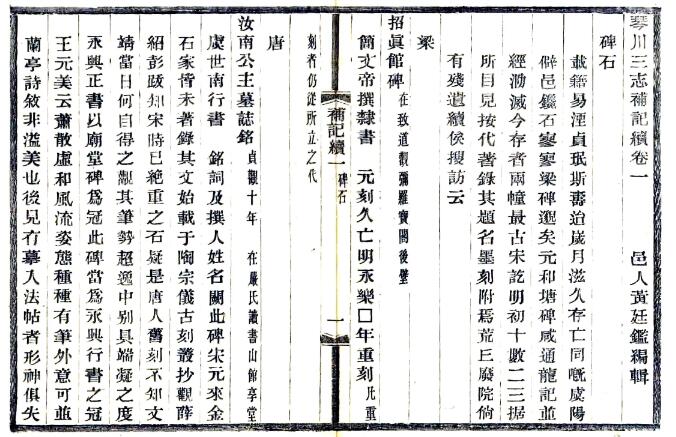 琴川三志補記續卷一　邑人黃廷鑑編輯
碑石
載籍易湮貞珉斯壽迨歲月滋久存亡同慨虞陽
僻邑鐫石寥寥梁碑邈矣元和塘碑咸通龍記並
經泐滅今存者兩幢最古宋訖明初十數二三据
所目見按代著錄其題名墨刻附焉荒王廢院倘
有殘遺續俟搜訪云
梁
招眞館碑 在致道觀彌羅寶閣後壁
簡文帝撰隸書　元刻久亡明永樂□年重刻 凡重
補記續一 碑石 一
刻者仍從所立之代
唐
汝南公主墓誌銘 貞觀十年　在嚴氏讀書山館享堂
虞世南行書　銘詞及撰人姓名闕此碑宋元來金
石家皆未著錄其文始載于陶宗儀古刻叢抄觀薛
紹彭跋知宋時已絶重之石疑是唐人舊刻不知文
靖當日何自得之觀其筆勢超逸中別具端凝之度
永興正書以廟堂碑爲冠此碑當爲永興行書之冠
王元美云蕭散虛和風流姿態種種有筆外意可並
蘭亭詩敘非溢美也後見有摹入法帖者形神俱失